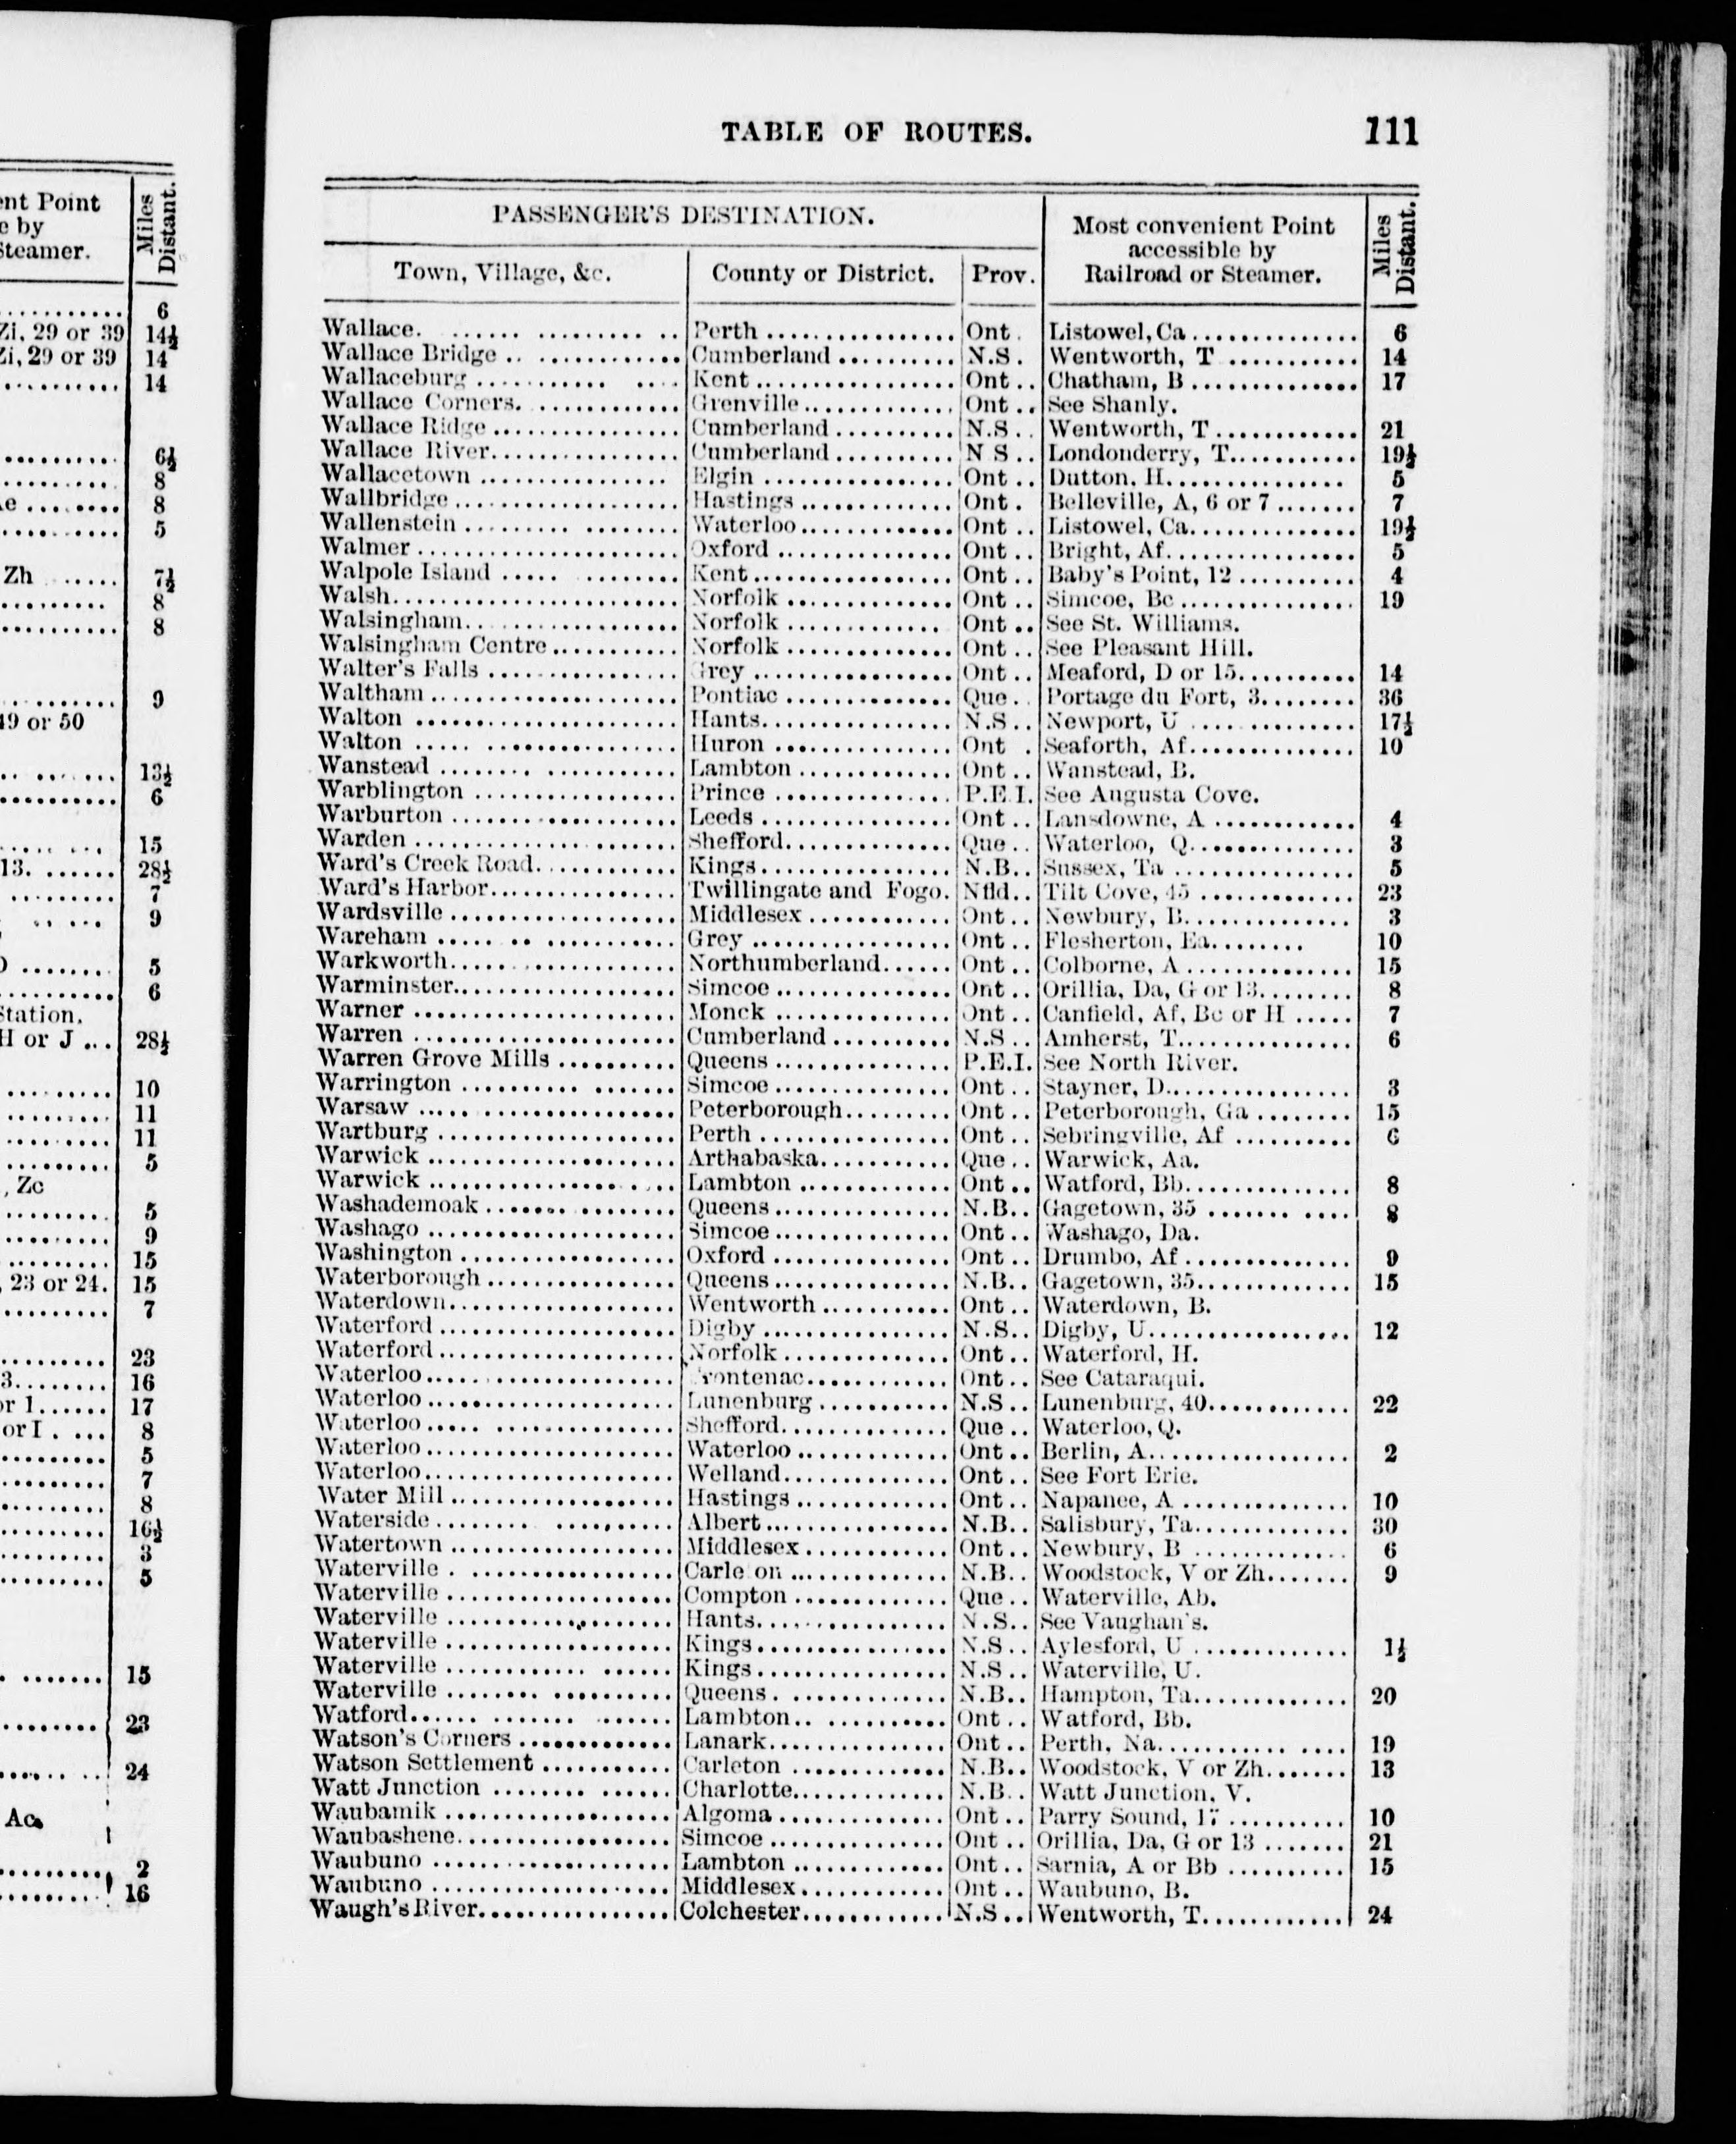 ent Point
e by
Steamer.
Miles
Distant.
6
Zi, 29 or 39 14½
Zi, 29 or 39 14
14
6½
8
8
5
Zh 7½
8
8
9
49 or 50
13½
6
15
13. 28½
7
9
5
6
Station.
H or J 28½
10
11
11
5
, Zc
5
9
15
, 23 or 24. 15
7
23
3 16
or 1 17
or I 8
5
7
8
16½
3
5
15
23
24
Ac.
2
16
TABLE OF ROUTES. 111
PASSENGER'S DESTINATION.
Most convenient Point
accessible by
Railroad or Steamer.
Miles
Distant.
Town, Village, &c. County or District. Prov.
Wallace Perth Ont. Listowel, Ca 6
Wallace Bridge Cumberland N.S. Wentworth, T 14
Wallaceburg Kent Ont. Chatham, B 17
Wallace Corners. Grenville Ont. See Shanly.
Wallace Ridge Cumberland N.S. Wentworth, T 21
Wallace River Cumberland N S. Londonderry, T 19½
Wallacetown Elgin Ont. Dutton, H 5
Wallbridge Hastings Ont. Belleville, A, 6 or 7 7
Wallenstein Waterloo Ont. Listowel, Ca 19½
Walmer Oxford Ont. Bright, Af 5
Walpole Island Kent Ont. Baby's Point, 12 4
Walsh Norfolk Ont. Simcoe, Bc 19
Walsingham Norfolk Ont. See St. Williams.
Walsingham Centre Norfolk Ont. See Pleasant Hill.
Walter's Falls Grey Ont. Meaford, D or 15 14
Waltham Pontiac Que. Portage du Fort, 3 36
Walton Hants N.S. Newport, U 17½
Walton Huron Ont. Seaforth, Af 10
Wanstead Lambton Ont. Wanstead, B.
Warblington Prince P.E.I. See Augusta Cove.
Warburton Leeds Ont. Lansdowne, A 4
Warden Shefford Que. Waterloo, Q 3
Ward's Creek Road Kings N.B. Sussex, Ta 5
Ward's Harbor Twillingate and Fogo. Nfld. Tilt Cove, 45 23
Wardsville Middlesex Ont. Newbury, B 3
Wareham Grey Ont. Flesherton, Ea 10
Warkworth Northumberland Ont. Colborne, A 15
Warminster Simcoe Ont. Orillia, Da, G or 13 8
Warner Monck Ont. Canfield, Af, Bc or H 7
Warren Cumberland N.S. Amherst, T 6
Warren Grove Mills Queens P.E.I. See North River.
Warrington Simcoe Ont. Stayner, D 3
Warsaw Peterborough Ont. Peterborough, Ga 15
Wartburg Perth Ont. Sebringville, Af 6
Warwick Arthabaska Que. Warwick, Aa.
Warwick Lambton Ont. Watford, Bb 8
Washademoak Queens N.B. Gagetown, 35 8
Washago Simcoe Ont. Washago, Da.
Washington Oxford Ont. Drumbo, Af 9
Waterborough Queens N.B. Gagetown, 35 15
Waterdown Wentworth Ont. Waterdown, B.
Waterford Digby N.S. Digby, U 12
Waterford Norfolk Ont. Waterford, H.
Waterloo Frontenac Ont. See Cataraqui.
Waterloo Lunenburg N.S. Lunenburg, 40 22
Waterloo Shefford Que. Waterloo, Q.
Waterloo Waterloo Ont. Berlin, A 2
Waterloo Welland Ont. See Fort Erie.
Water Mill Hastings Ont. Napanee, A 10
Waterside Albert N.B. Salisbury, Ta 30
Watertown Middlesex Ont. Newbury, B 6
Waterville Carle on N.B. Woodstock, V or Zh 9
Waterville Compton Que. Waterville, Ab.
Waterville Hants N.S. See Vaughan's.
Waterville Kings N.S. Aylesford, U 1½
Waterville Kings N.S. Waterville, U.
Waterville Queens N.B. Hampton, Ta 20
Watford Lambton Ont. Watford, Bb.
Watson's Corners Lanark Ont. Perth, Na 19
Watson Settlement Carleton N.B. Woodstock, V or Zh 13
Watt Junction Charlotte N.B. Watt Junction, V.
Waubamik Algoma Ont. Parry Sound, 17 10
Waubashene Simcoe Ont. Orillia, Da, G or 13 21
Waubuno Lambton Ont. Sarnia, A or Bb 15
Waubuno Middlesex Ont. Waubuno, B.
Waugh's River Colchester N.S. Wentworth, T 24